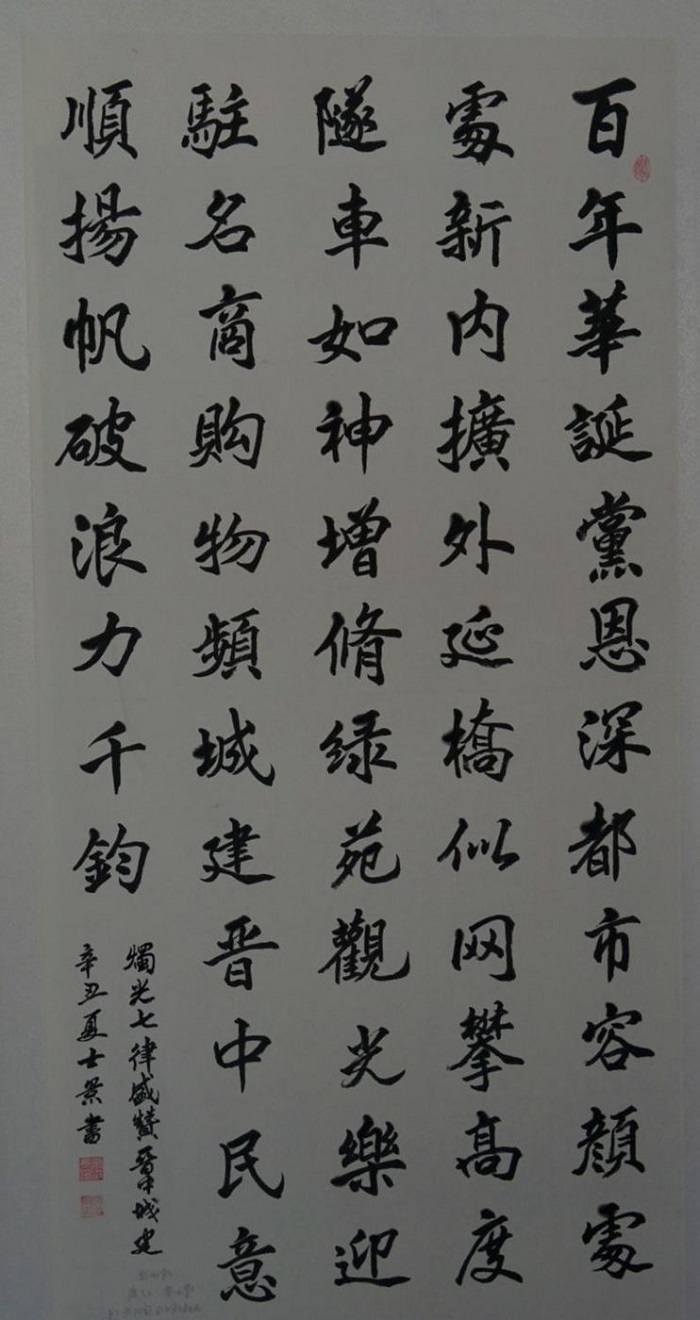 百年華誕黨恩深都市容顔處
處新内擴外延橋似网攀高度
隧車如神增脩绿苑觀光樂迎
駐名商购物頻城建晋中民意
順揚帆破浪力千鈞
燭光七律盛贊晋中城建
辛丑夏士景書